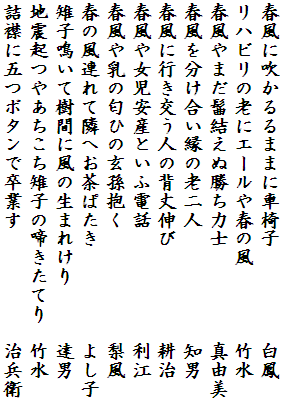 春風に吹かるるままに車椅子　白鳳
リハビリの老にエールや春の風　竹水
春風やまだ髷結えぬ勝ち力士　真由美
春風を分け合い縁の老二人　知男
春風に行き交う人の背丈伸び　耕治
春風や女児安産といふ電話　利江
春風や乳の匂ひの玄孫抱く　梨風
春の風連れて隣へお茶ばたき　よし子
雉子鳴いて樹間に風の生まれけり　達男
地震起つやあちこち雉子の啼きたてり　竹水
詰襟に五つボタンで卒業す　治兵衛